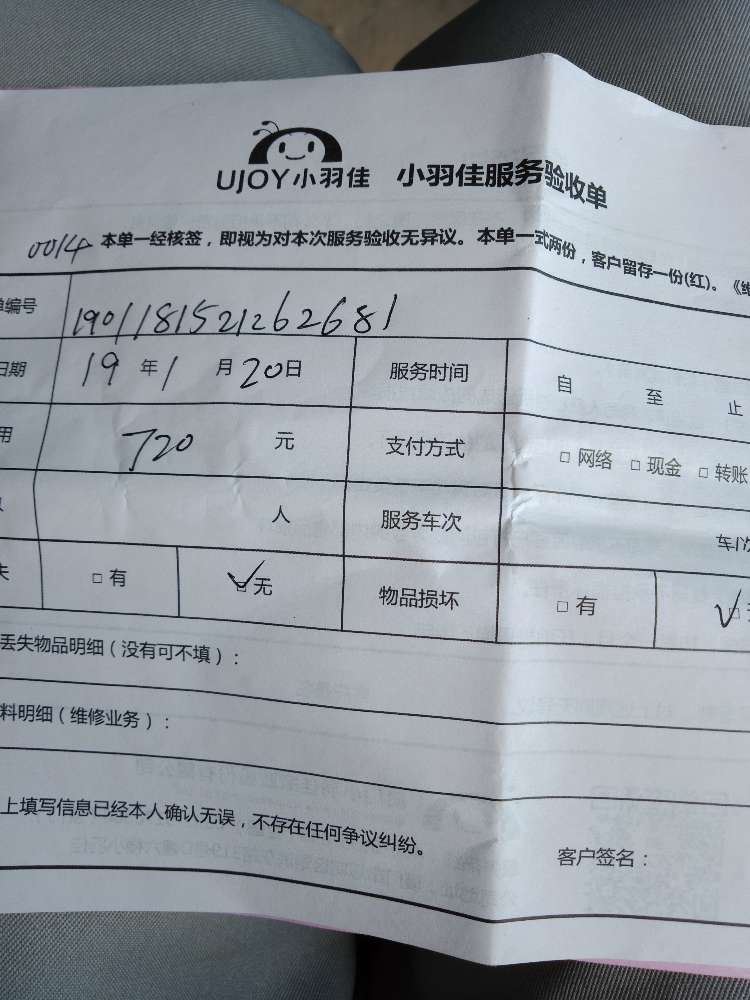 UJOY小羽佳 小羽佳服务验收单
0014 本单一经核签，即视为对本次服务验收无异议。本单一式两份，客户留存一份(红)。《维
单编号 1901181521262681
日期 19 年 1 月 20 日 服务时间 自 至 止
用 720 元 支付方式 □ 网络 □ 现金 □ 转账
人 服务车次 车次
失 □ 有 □ 无 物品损坏 □ 有
丢失物品明细（没有可不填）：
料明细（维修业务）：
上填写信息已经本人确认无误，不存在任何争议纠纷。
客户签名：